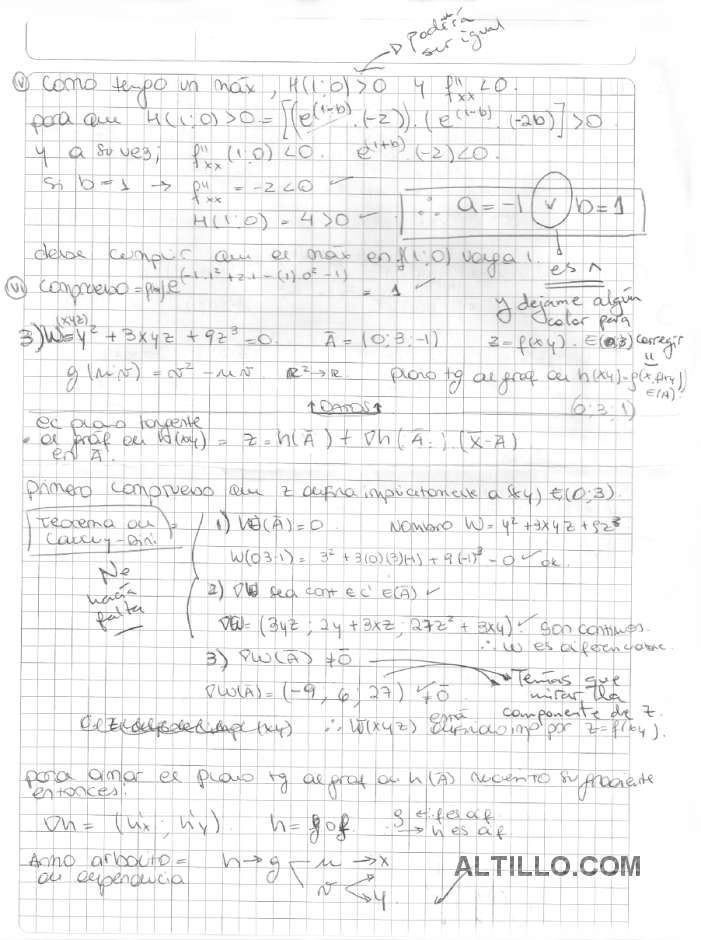 podría
ser igual
(V) Como tengo un máx, H(1;0)>0 y f''xx <0.
para que H(1;0)>0 = [(e^(1-b) . (-2)) . (e^(1-b) . (-2b)] >0
y a su vez; f''xx (1;0) <0. e^(1+b) . (-2) <0.
Si b=1 → f''xx = -2<0 ✓
H(1;0) = 4>0 ✓ ∴ a=-1 ∨ b=1
debe cumplir que el máx en f(1;0) valga 1.
es ∧
(VI) compruebo = e^(-1.1²+2.1-(1).0²-1) = 1 ✓
y dejame algún
color para
corregir
3) W(xyz) = y² + 3xyz + 9z³ = 0. Ā = (0;3;-1) z=f(xy). ∈(0;3)
g(u;v) = v² - uv R²→R plano tg al graf de h(xy)=g(x,f(xy))
∈(A).
↑DATOS↑ (0;3;1)
ec plano tangente
al gráf de h(xy) = z = h(Ā) + ∇h(Ā) . (X̄-Ā)
en Ā.
primero compruebo que z defina implicitamente a (xy) ∈(0;3).
Teorema de
Cauchy-Dini = 1) W(Ā)=0 nombro W= y²+3xyz+9z³
W(03-1) = 3² + 3(0)(3)(-1) + 9(-1)³ = 0 ✓ ok.
No
hacía
falta
2) ∇W sea cont ∈ C' ∈(Ā) ✓
∇W = (3yz ; 2y + 3xz ; 27z² + 3xy) ✓ son continuos.
∴ W es diferenciable.
3) ∇W(Ā) ≠ 0̄
∇W(Ā) = (-9 , 6 ; 27) ≠ 0̄
Tenías que
mirar la
componente de z.
(xy) ∴ W(xyz) está definido imp por z=f(xy).
para armar el plano tg al graf de h(Ā) necesito su gradiente
entonces:
∇h = (h'x ; h'y). h = gof. g ∈ f es dif
→ h es dif
Armo arbolito =
de dependencia h → g u → x
v → y
ALTILLO.COM